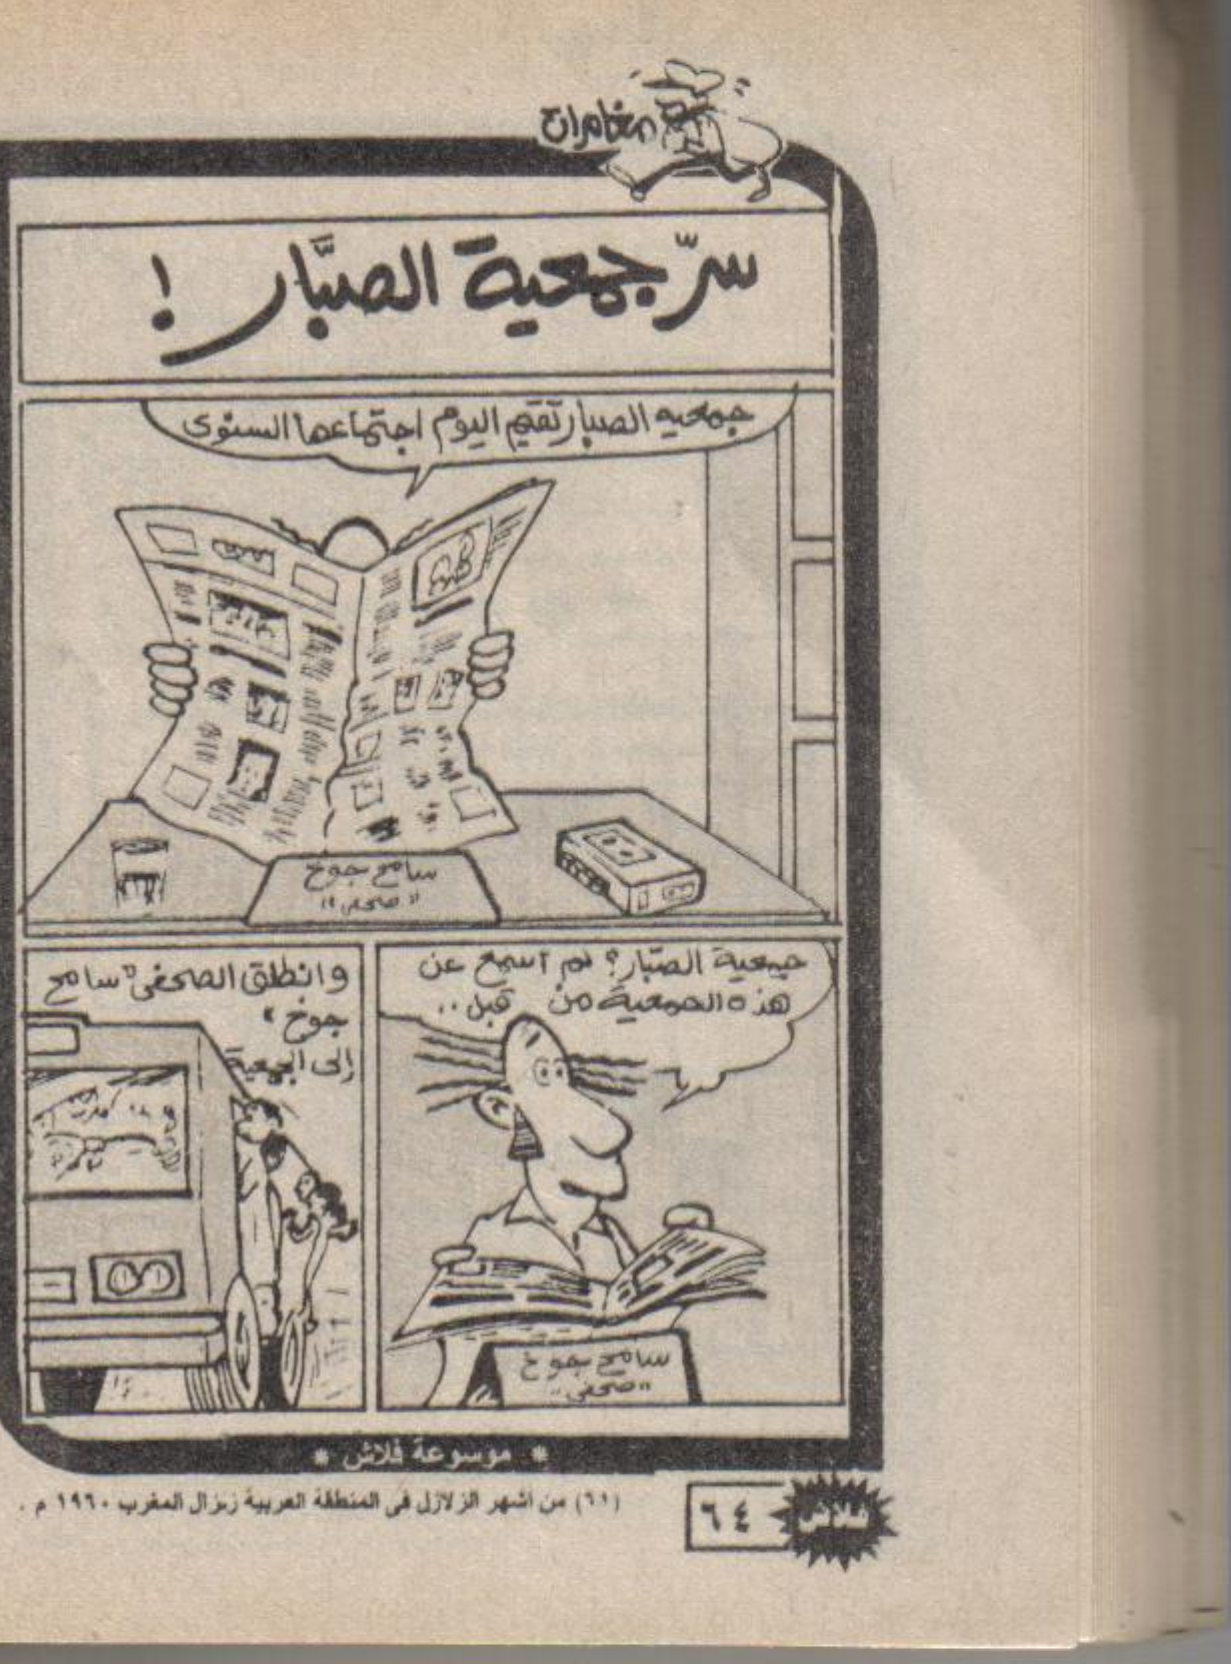 مغامرات
سرّ جمعية الصبَّار !
جمعيه الصبار تقيم اليوم اجتماعها السنوى
سامح جوخ
"صحفى"
جمعية الصبّار؟ لم اسمع عن
هذه الجمعية من قبل..
سامح جوخ
"صحفى"
وانطلق الصحفى "سامح
جوخ"
إلى الجمعية
* موسوعة فلاش *
(٦١) من أشهر الزلازل فى المنطقة العربية زلزال المغرب ١٩٦٠ م .
فلاش
٦٤